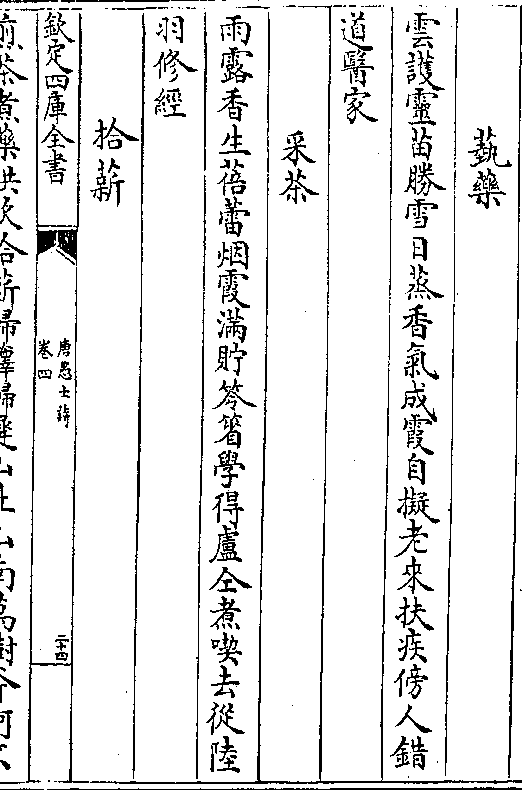 蓺藥
雲護靈苗勝雪日蒸香氣成霞自擬老來扶疾傍人錯
道醫家
采茶
雨露香生蓓蕾烟霞滿貯笭箵學得盧仝煮喫去從陸
羽修經
拾薪
欽定四庫全書
唐愚士詩
卷四
二十四
煎茶煮藥供炊拾薪歸
歸遲山北山南萬樹